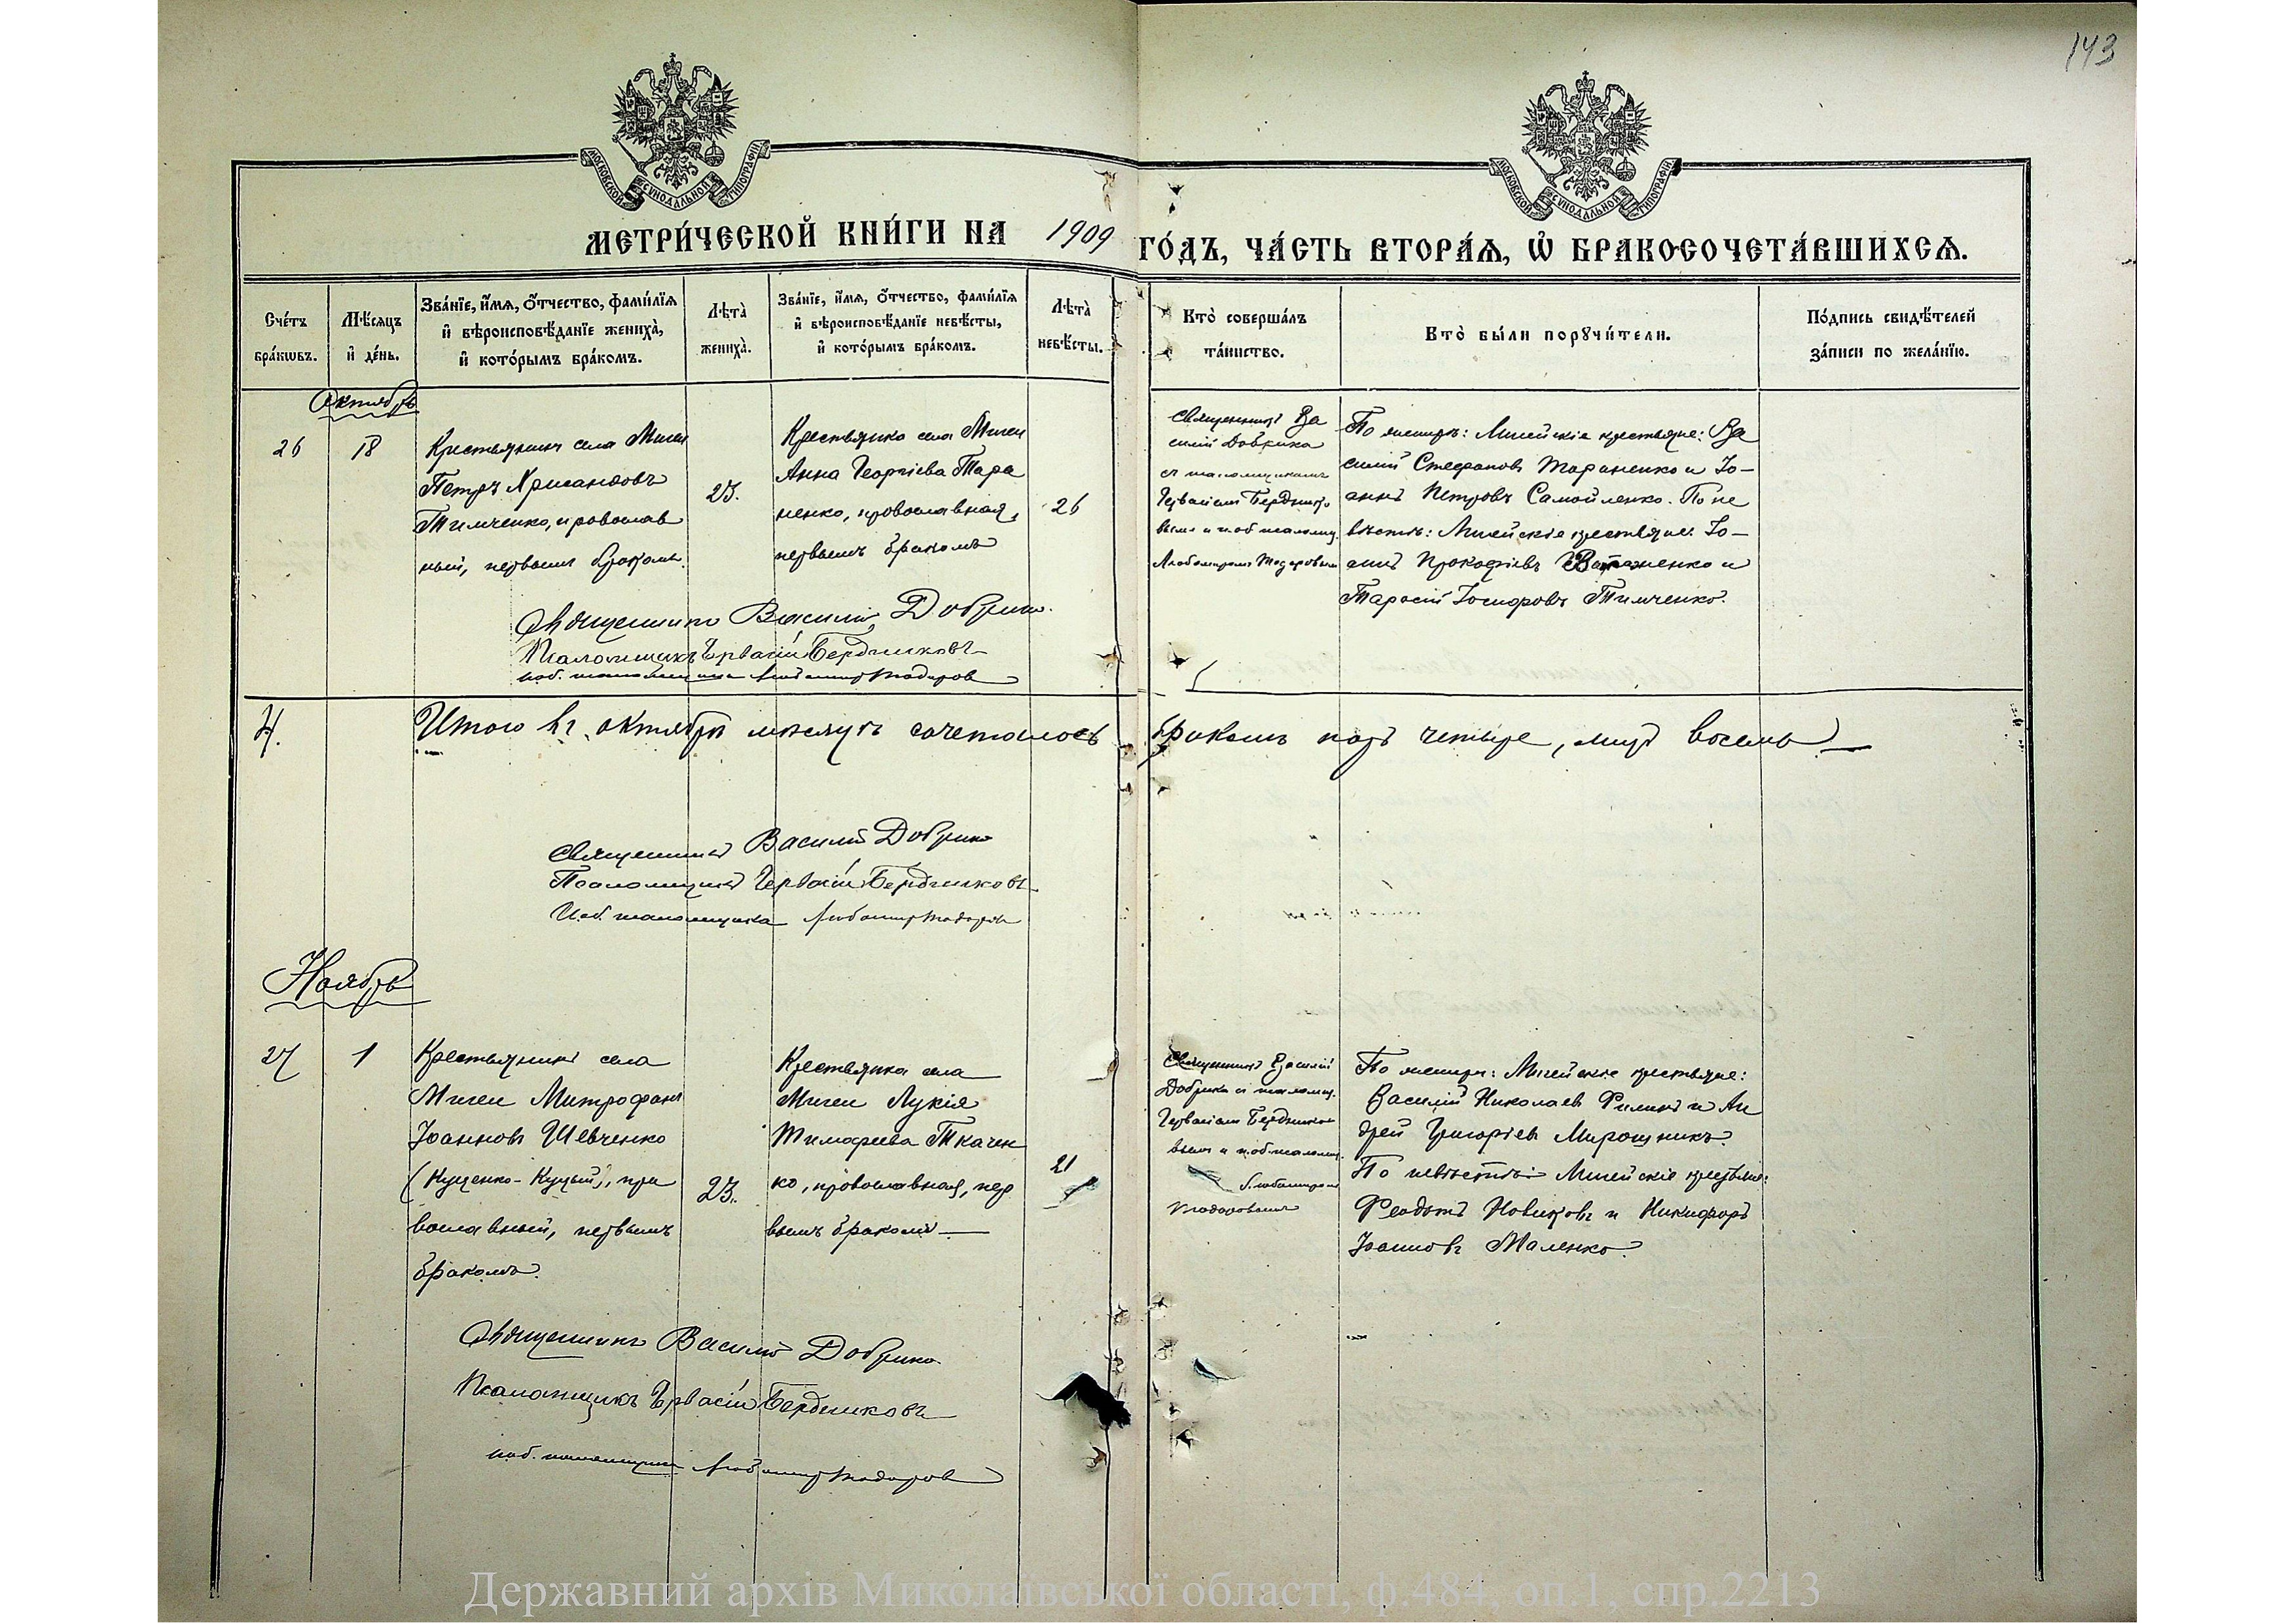 143
МОСКОВСКОЙ СѴНОДАЛЬНОЙ ТИПОГРАФІИ
МОСКОВСКОЙ СѴНОДАЛЬНОЙ ТИПОГРАФІИ
МЕТРИ́ЧЕСКОЙ КНИ́ГИ НА 1909 ГО́ДЪ, ЧА́СТЬ ВТОРА́Ѧ, Ѽ БРАКОСОЧЕТА́ВШИХСѦ.
Сче́тъ
бра́кѡвъ.
Мѣ́сяцъ
и҆ де́нь.
Зва́нїе, и҆́мѧ, ѻ҆́тчество, фами́лїѧ
и҆ вѣроисповѣ́данїе жениха̀,
и҆ кото́рымъ бра́комъ.
Лѣта̀
жениха̀.
Зва́нїе, и҆́мѧ, ѻ҆́тчество, фами́лїѧ
и҆ вѣроисповѣ́данїе невѣ́сты,
и҆ кото́рымъ бра́комъ.
Лѣта̀
невѣ́сты.
Кто̀ соверша́лъ
та́инство.
Кто̀ бы́ли порꙋчи́тели.
По́дпись свидѣ́телей
за́писи по жела́нїю.
Октябрь
26
18
Крестьянинъ села Мигеи
Петръ Хрисанѳовъ
Тимченко, православ
ный, первымъ бракомъ.
23.
Крестьянка села Мигеи
Анна Георгіева Тара
ненко, православная,
первымъ бракомъ
26
Священникъ Ва
силій Добрика
съ псаломщикомъ
Гервасіемъ Бердніко
вымъ и и.об. псаломщ.
Любомиромъ Тодоровымъ
По женихѣ: Мигейскіе крестьяне: Ва
силій Стефановъ Тараненко и Іо–
аннъ Петровъ Самойленко. По не
вѣстѣ: Мигейскіе крестьяне: Іо–
аннъ Прокофіевъ и
Тарасій Іосифовъ Тимченко.
Священникъ Василій Добрика
Псаломщикъ Гервасій Бердниковъ
и.об. псаломщика Любомиръ Тодоровъ
4.
Итого въ октябрѣ мѣсяцѣ сочеталось бракомъ паръ четыре, лицъ восемь
Священникъ Василій Добрика
Псаломщикъ Гервасій Бердниковъ
И.об. псаломщика Любомиръ Тодоровъ
Ноябрь
27
1
Крестьянинъ села
Мигеи Митрофанъ
Іоанновъ Шевченко
(Куценко-Куцый), пра
вославный, первымъ
бракомъ.
23.
Крестьянка села
Мигеи Лукія
Тимофеева Ткачен
ко, православная, пер
вымъ бракомъ
21
Священникъ Василій
Добрика и псаломщ.
Гервасіем Берднико
вымъ и и.об. псаломщ.
Любомиромъ
Тодоровымъ
По женихѣ: Мигейскіе крестьяне:
Василій Николаевъ Филинъ и Ан
дрей Григоріевъ Мирошникъ.
По невѣстѣ: Мигейскіе крестьяне:
Феодотъ Новиковъ и Никифоръ
Іоанновъ Маленко
Священникъ Василій Добрика
Псаломщикъ Гервасій Бердниковъ
и.об. псаломщика Любомиръ Тодоровъ
Державний архів Миколаївської області, ф.484, оп.1, спр.2213